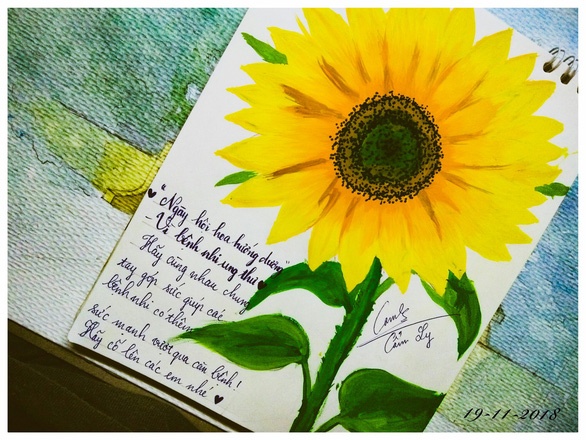 "Ngày hội hoa hướng dương"
- Vì bệnh nhi ung thư
Hãy cùng nhau chung
tay góp sức giúp các
bệnh nhi có thêm
sức mạnh vượt qua căn bệnh!
Hãy cố lên các em nhé
Cẩm Ly
19-11-2018